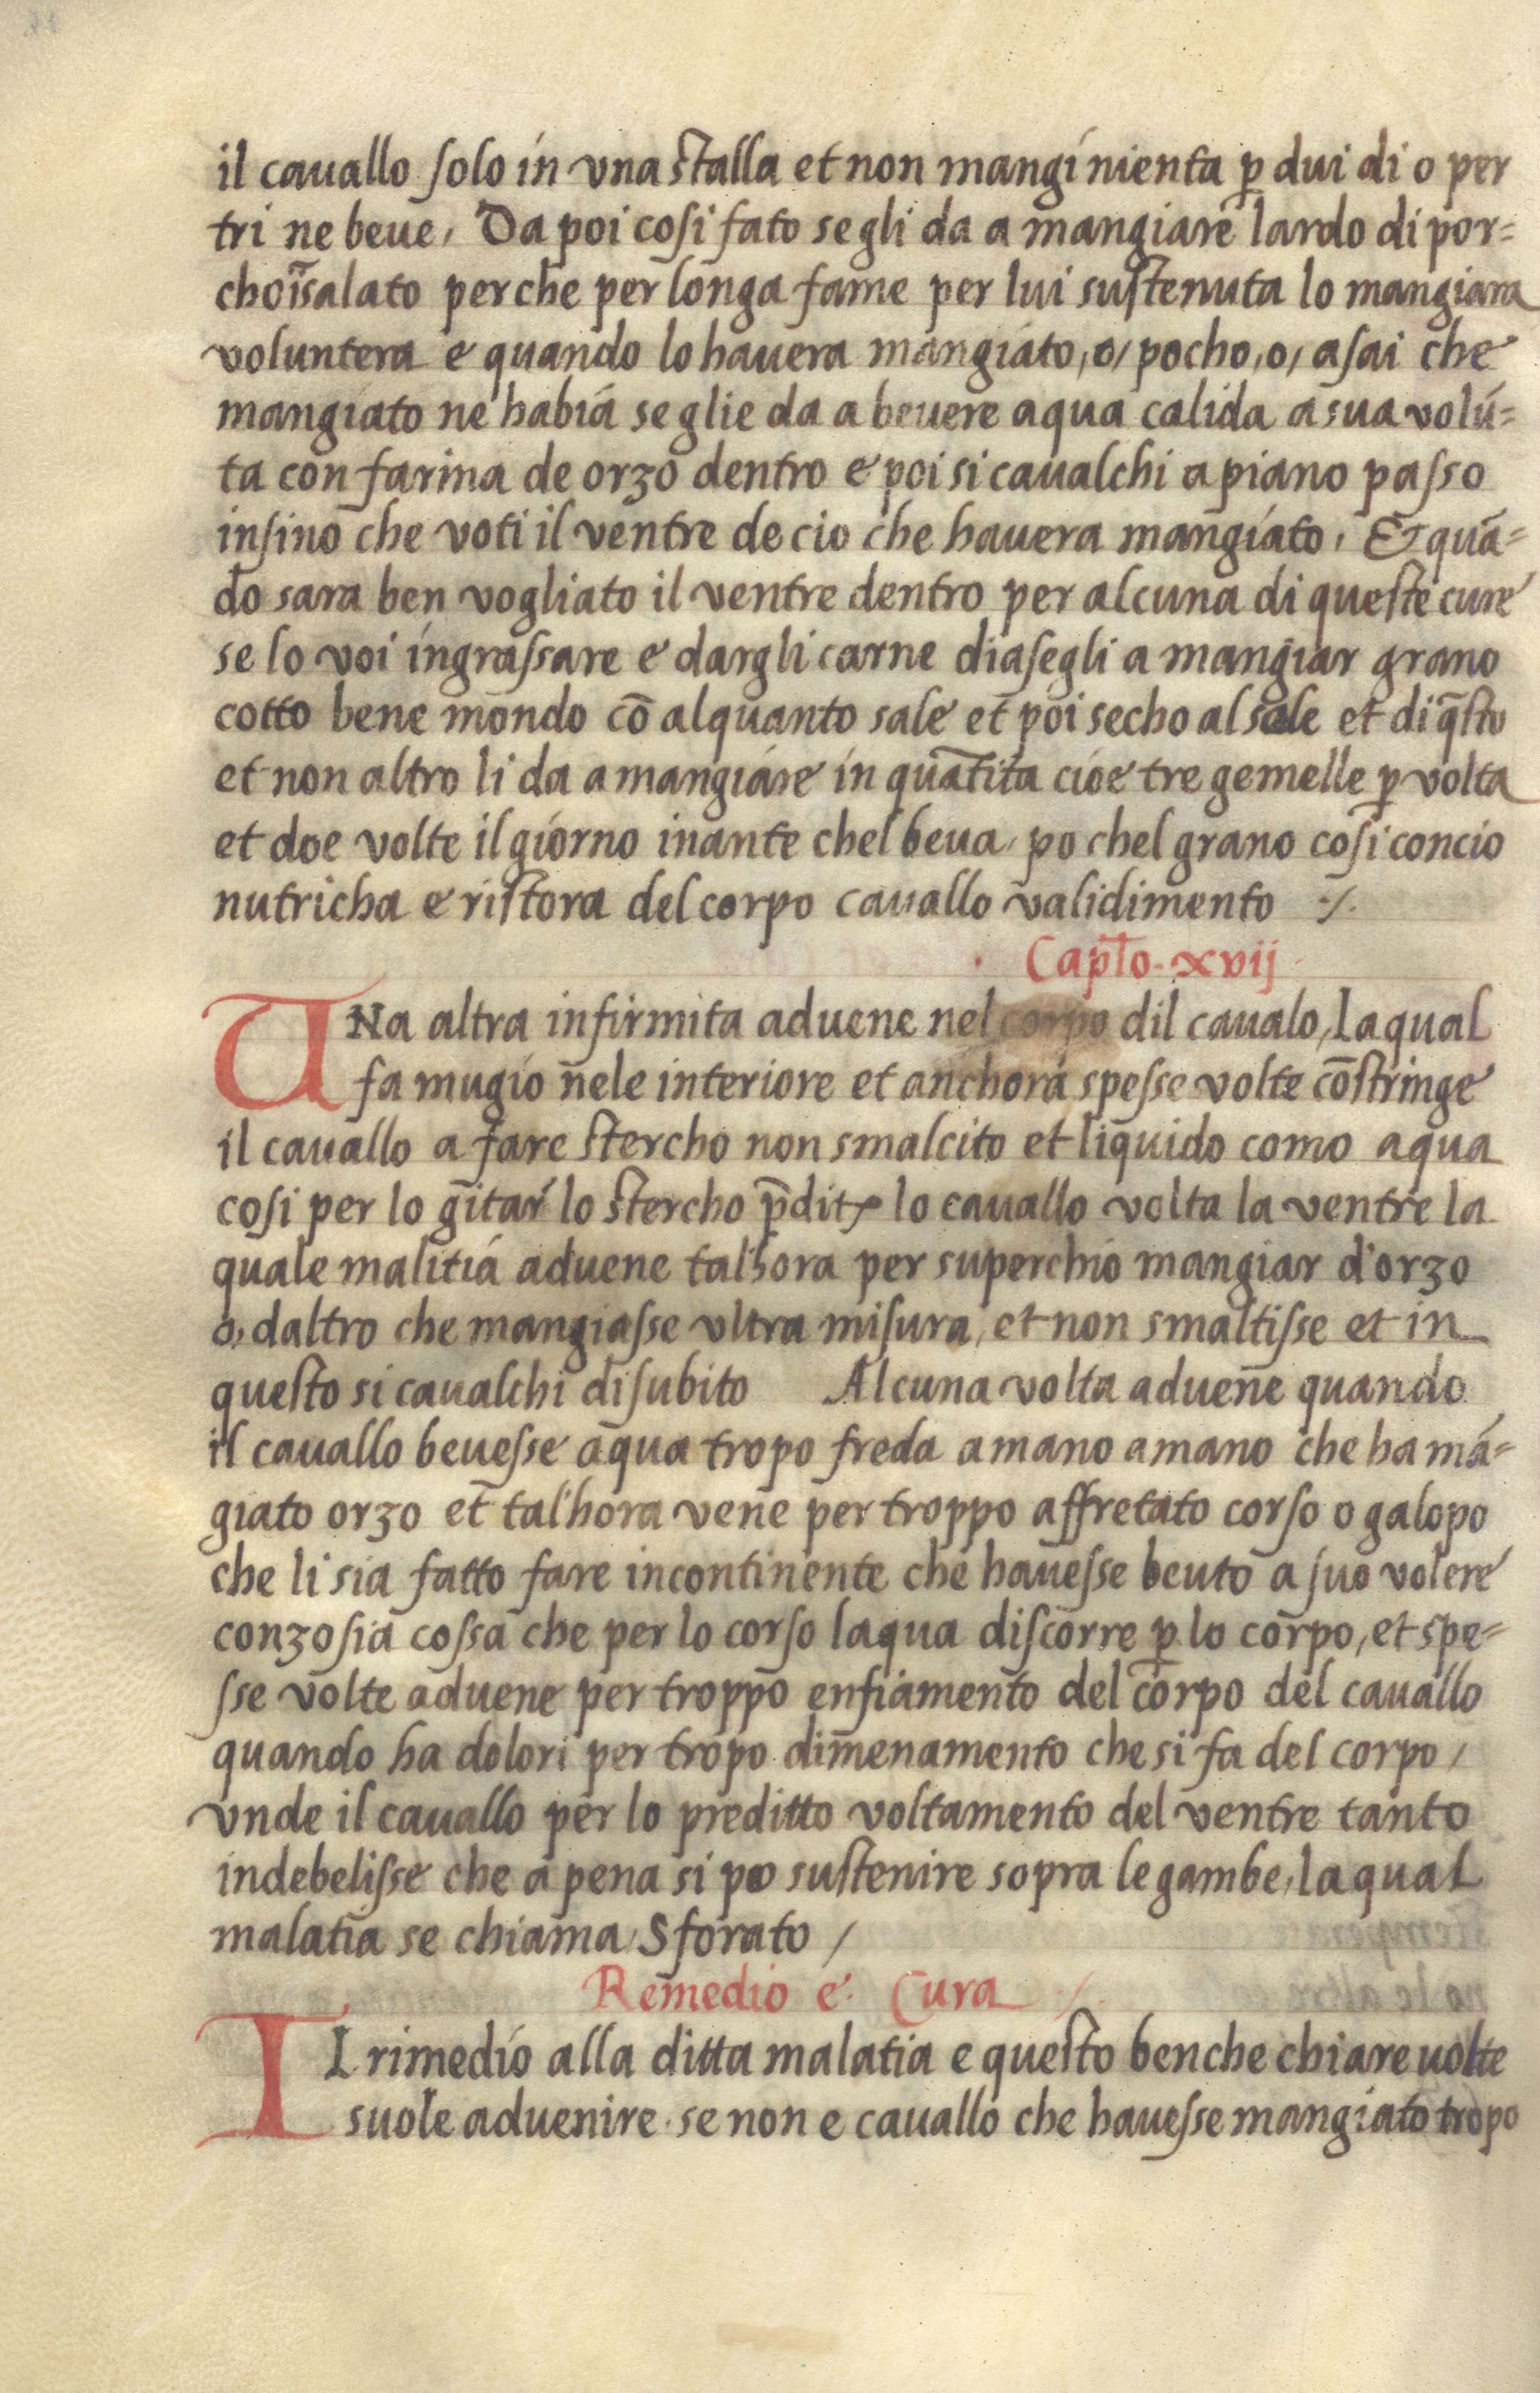 il cauallo solo in vna stalla et non mangi nienta ꝑ dui di o per
tri ne beue, Da poi cosi fato se gli da a mangiare lardo di por=
cho īsalato perche per longa fame per lui sustenuta lo mangiara
voluntera e quando lo hauera mangiato, o, pocho, o, asai che
mangiato ne habia se glie da a beuere aqua calida a sua volū=
ta con farina de orzo dentro e poi si caualchi a piano passo
insino che voti il ventre de cio che hauera mangiato, Et quā=
do sara ben vogliato il ventre dentro per alcuna di queste cure
se lo voi ingrassare e dargli carne diasegli a mangiar grano
cotto bene mondo cō alquanto sale et poi secho al sole et di q̄sto
et non altro li da a mangiare in quātita cioe tre gemelle ꝑ volta
et doe volte il giorno inante chel beua, po chel grano cosi concio
nutricha e ristora del corpo cauallo validimento ./.
Capto. xvij
UNa altra infirmita aduene nel corpo dil caualo, La qual
fa mugio nele interiore et anchora spesse volte cōstringe
il cauallo a fare stercho non smalcito et liquido como aqua
cosi per lo gitar lo stercho p̄dito lo cauallo volta la ventre la
quale malitia aduene talhora per superchio mangiar d'orzo
o, daltro che mangiasse vltra misura, et non smaltisse et in
questo si caualchi di subito Alcuna volta aduene quando
il cauallo beuesse aqua tropo freda a mano a mano che ha mā=
giato orzo et tal'hora vene per troppo affretato corso o galopo
che li sia fatto fare incontinente che hauesse beuto a suo volere
conzosia cossa che per lo corso laqua discorre ꝑ lo corpo, et spe=
sse volte aduene per troppo enfiamento del corpo del cauallo
quando ha dolori per tropo dimenamento che si fa del corpo /
vnde il cauallo per lo preditto voltamento del ventre tanto
indebelisse che a pena si po sustenire sopra le gambe, la qual
malatia se chiama Sforato /
Remedio e Cura
IL rimedio alla ditta malatia e questo benche chiare uolte
suole aduenire, se non e cauallo che hauesse mangiato tropo